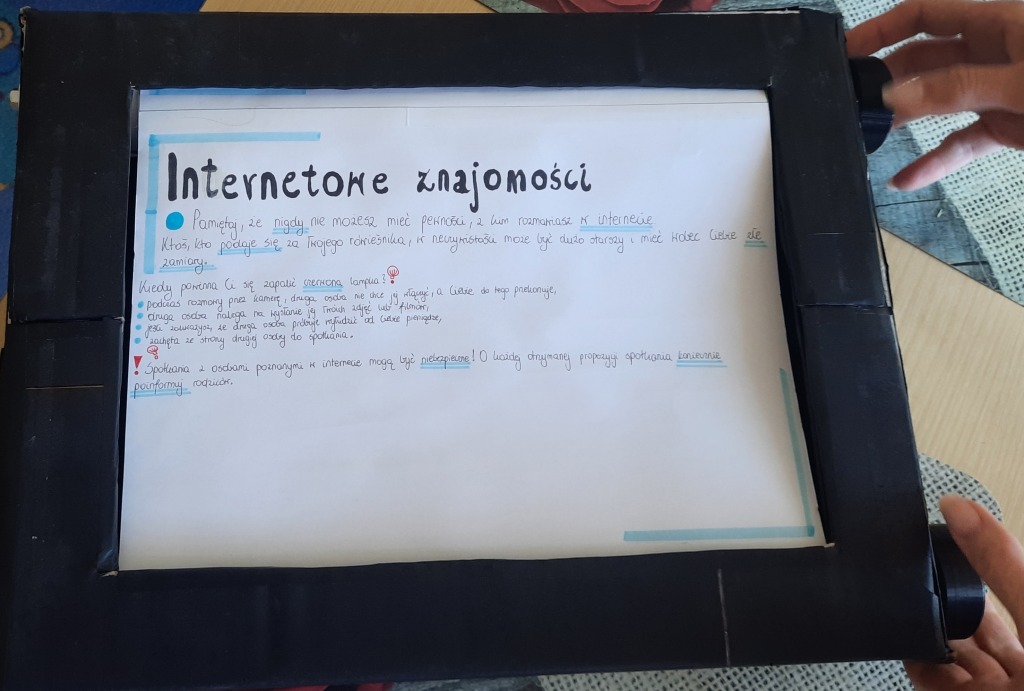 Internetowe znajomości
Pamiętaj, że nigdy nie możesz mieć pewności, z kim rozmawiasz w internecie.
Ktoś, kto podaje się za Twojego rówieśnika, w rzeczywistości może być dużo starszy i mieć wobec Ciebie złe
zamiary.
Kiedy powinna Ci się zapalić czerwona lampka?
podczas rozmowy przez kamerę, druga osoba nie chce jej włączyć, a Ciebie do tego przekonuje,
druga osoba nalega na wysłanie jej Twoich zdjęć lub filmów,
jeśli zauważysz, że druga osoba próbuje wyłudzić od Ciebie pieniądze,
zachęta ze strony drugiej osoby do spotkania.
! Spotkania z osobami poznanymi w internecie mogą być niebezpieczne! O każdej otrzymanej propozycji spotkania koniecznie
poinformuj rodziców.